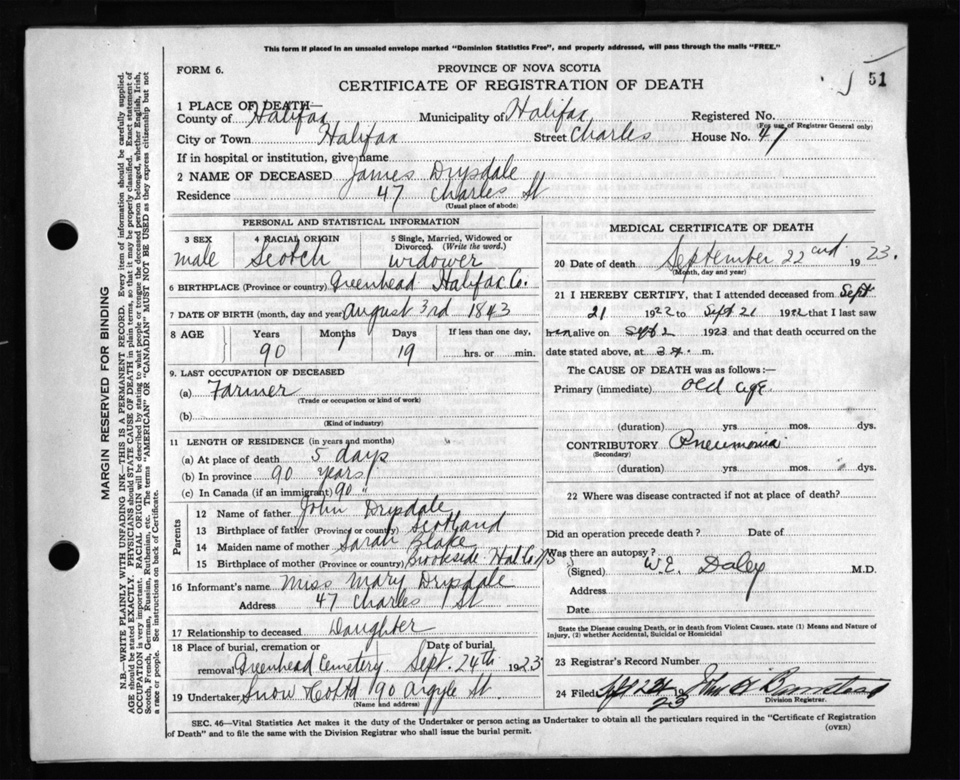 This form if placed in an unsealed envelope marked "Dominion Statistics Free", and properly addressed, will pass through the mails "FREE."
FORM 6.
PROVINCE OF NOVA SCOTIA
51
CERTIFICATE OF REGISTRATION OF DEATH
1 PLACE OF DEATH—
County of Halifax Municipality of Halifax Registered No.
(For use of Registrar General only)
City or Town Halifax Street Charles House No. 47
If in hospital or institution, give name
2 NAME OF DECEASED James Drysdale
Residence 47 Charles St
(Usual place of abode)
PERSONAL AND STATISTICAL INFORMATION
3 SEX 4 RACIAL ORIGIN 5 Single, Married, Widowed or Divorced. (Write the word.)
male Scotch widower
6 BIRTHPLACE (Province or country) Greenhead Halifax Co.
7 DATE OF BIRTH (month, day and year) August 3rd 1843
8 AGE Years Months Days If less than one day,
90 1 19 hrs. or min.
9. LAST OCCUPATION OF DECEASED
(a) Farmer
(Trade or occupation or kind of work)
(b)
(Kind of industry)
11 LENGTH OF RESIDENCE (in years and months)
(a) At place of death 5 days
(b) In province 90 years
(c) In Canada (if an immigrant) 90 "
Parents
12 Name of father John Drysdale
13 Birthplace of father (Province or country) Scotland
14 Maiden name of mother Sarah Blake
15 Birthplace of mother (Province or country) Brookside Hal Co NS
16 Informant's name Miss Mary Drysdale
Address 47 Charles St
17 Relationship to deceased Daughter
18 Place of burial, cremation or Date of burial
removal Greenhead Cemetery. Sept. 24th 1923
19 Undertaker Snow Co Ltd 90 Argyle St.
(Name and address)
MEDICAL CERTIFICATE OF DEATH
20 Date of death September 22nd 1923.
(Month, day and year)
21 I HEREBY CERTIFY, that I attended deceased from Sept
21 1922 to Sept 21 1922 that I last saw
him alive on Sept 2 1923 and that death occurred on the
date stated above, at 3 m.
The CAUSE OF DEATH was as follows:—
Primary (immediate) Old Age
(duration) yrs. mos. dys.
CONTRIBUTORY Pneumonia
(Secondary)
(duration) yrs. mos. dys.
22 Where was disease contracted if not at place of death?
Did an operation precede death? Date of
Was there an autopsy?
(Signed) W.E. Daley M.D.
Address
Date
State the Disease causing Death, or in death from Violent Causes. state (1) Means and Nature of
Injury, (2) whether Accidental, Suicidal or Homicidal
23 Registrar's Record Number
24 Filed Sept 24 1923
Division Registrar.
SEC. 46—Vital Statistics Act makes it the duty of the Undertaker or person acting as Undertaker to obtain all the particulars required in the "Certificate of Registration
of Death" and to file the same with the Division Registrar who shall issue the burial permit.
(OVER)
MARGIN RESERVED FOR BINDING
N.B.—WRITE PLAINLY WITH UNFADING INK—THIS IS A PERMANENT RECORD. Every item of information should be carefully supplied.
AGE should be stated EXACTLY. PHYSICIANS should STATE CAUSE OF DEATH in plain terms, so that it may be properly classified. Exact statement of
OCCUPATION is very important. RACIAL ORIGIN will be described by stating to what people or tongue the deceased person belonged, whether English, Irish,
Scotch, French, German, Russian, Ruthenian, etc. The terms "AMERICAN" OR "CANADIAN" MUST NOT BE USED as they express citizenship but not
a race or people. See instructions on back of Certificate.